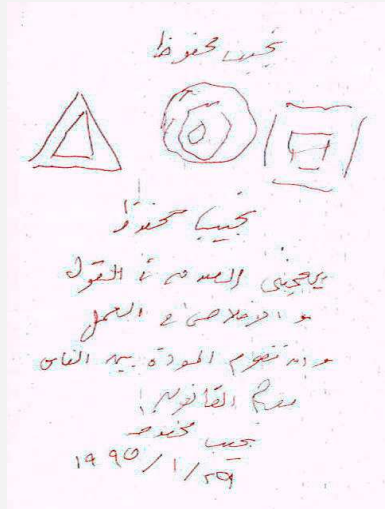 نجيب محفوظ
نجيب محفوظ
يعجبنى الصدق فى القول
و الإخلاص فى العمل
وان تقوم المودة بين الناس
مقام القانون
نجيب محفوظ
١٩٩٥/١/٢٩